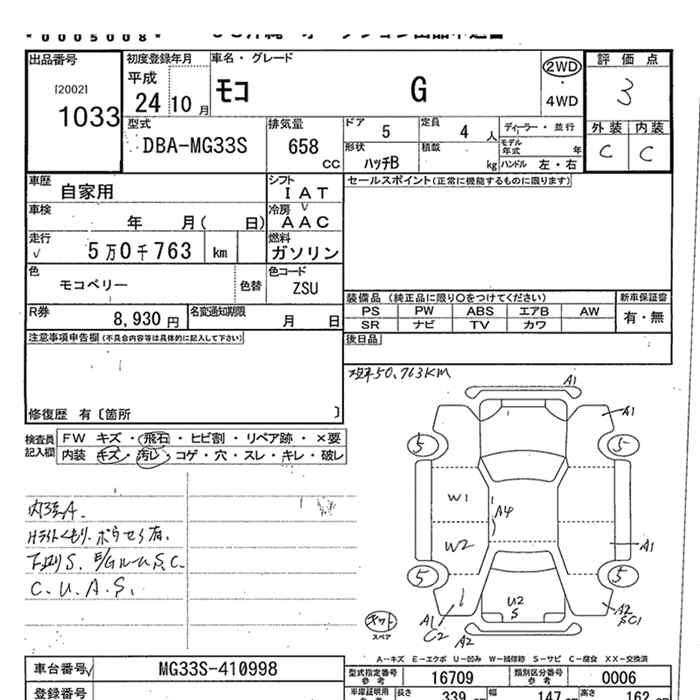 *0005008*
出品番号
[2002]
1033
初度登録年月
平成
24年10月
車名・グレード
モコ G
2WD
・
4WD
評価点
3
型式
DBA-MG33S
排気量
658
CC
ドア 5
定員 4 人
ディーラー・並行
モデル年式 年
外装 内装
C C
形状
ハッチB
積載 kg
ハンドル 左・右
車歴
自家用
シフト
IAT
セールスポイント(正常に機能するものに限ります)
車検
年 月( 日)
冷房
AAC
走行
5万0千763 km
燃料
ガソリン
色
モコベリー
色替
色コード
ZSU
装備品 (純正品に限り○をつけてください)
新車保証書
PS PW ABS エアB AW
有・無
SR ナビ TV カワ
R券
8,930円
名変通知期限
月 日
後日品
注意事項申告欄(不具合内容等は具体的に記入して下さい)
修復歴 有〔箇所 〕
50,763KM
検査員
記入欄
FW キズ・飛石・ヒビ割・リペア跡・×要
内装 キズ・汚レ・コゲ・穴・スレ・キレ・破レ
C.U.A.S.
A1
A1
5
5
W1
A4
W2
A1
5
5
U2
S
A1
C2
A2
A2
SC1
スペア
A-キズ E-エクボ U-凹み W-補修跡 S-サビ C-腐食 XX-交換済
車台番号
MG33S-410998
型式指定番号
参考
16709
類別区分番号
参考
0006
登録番号
車庫証明用
参考
長さ 339
幅 147
高さ 162